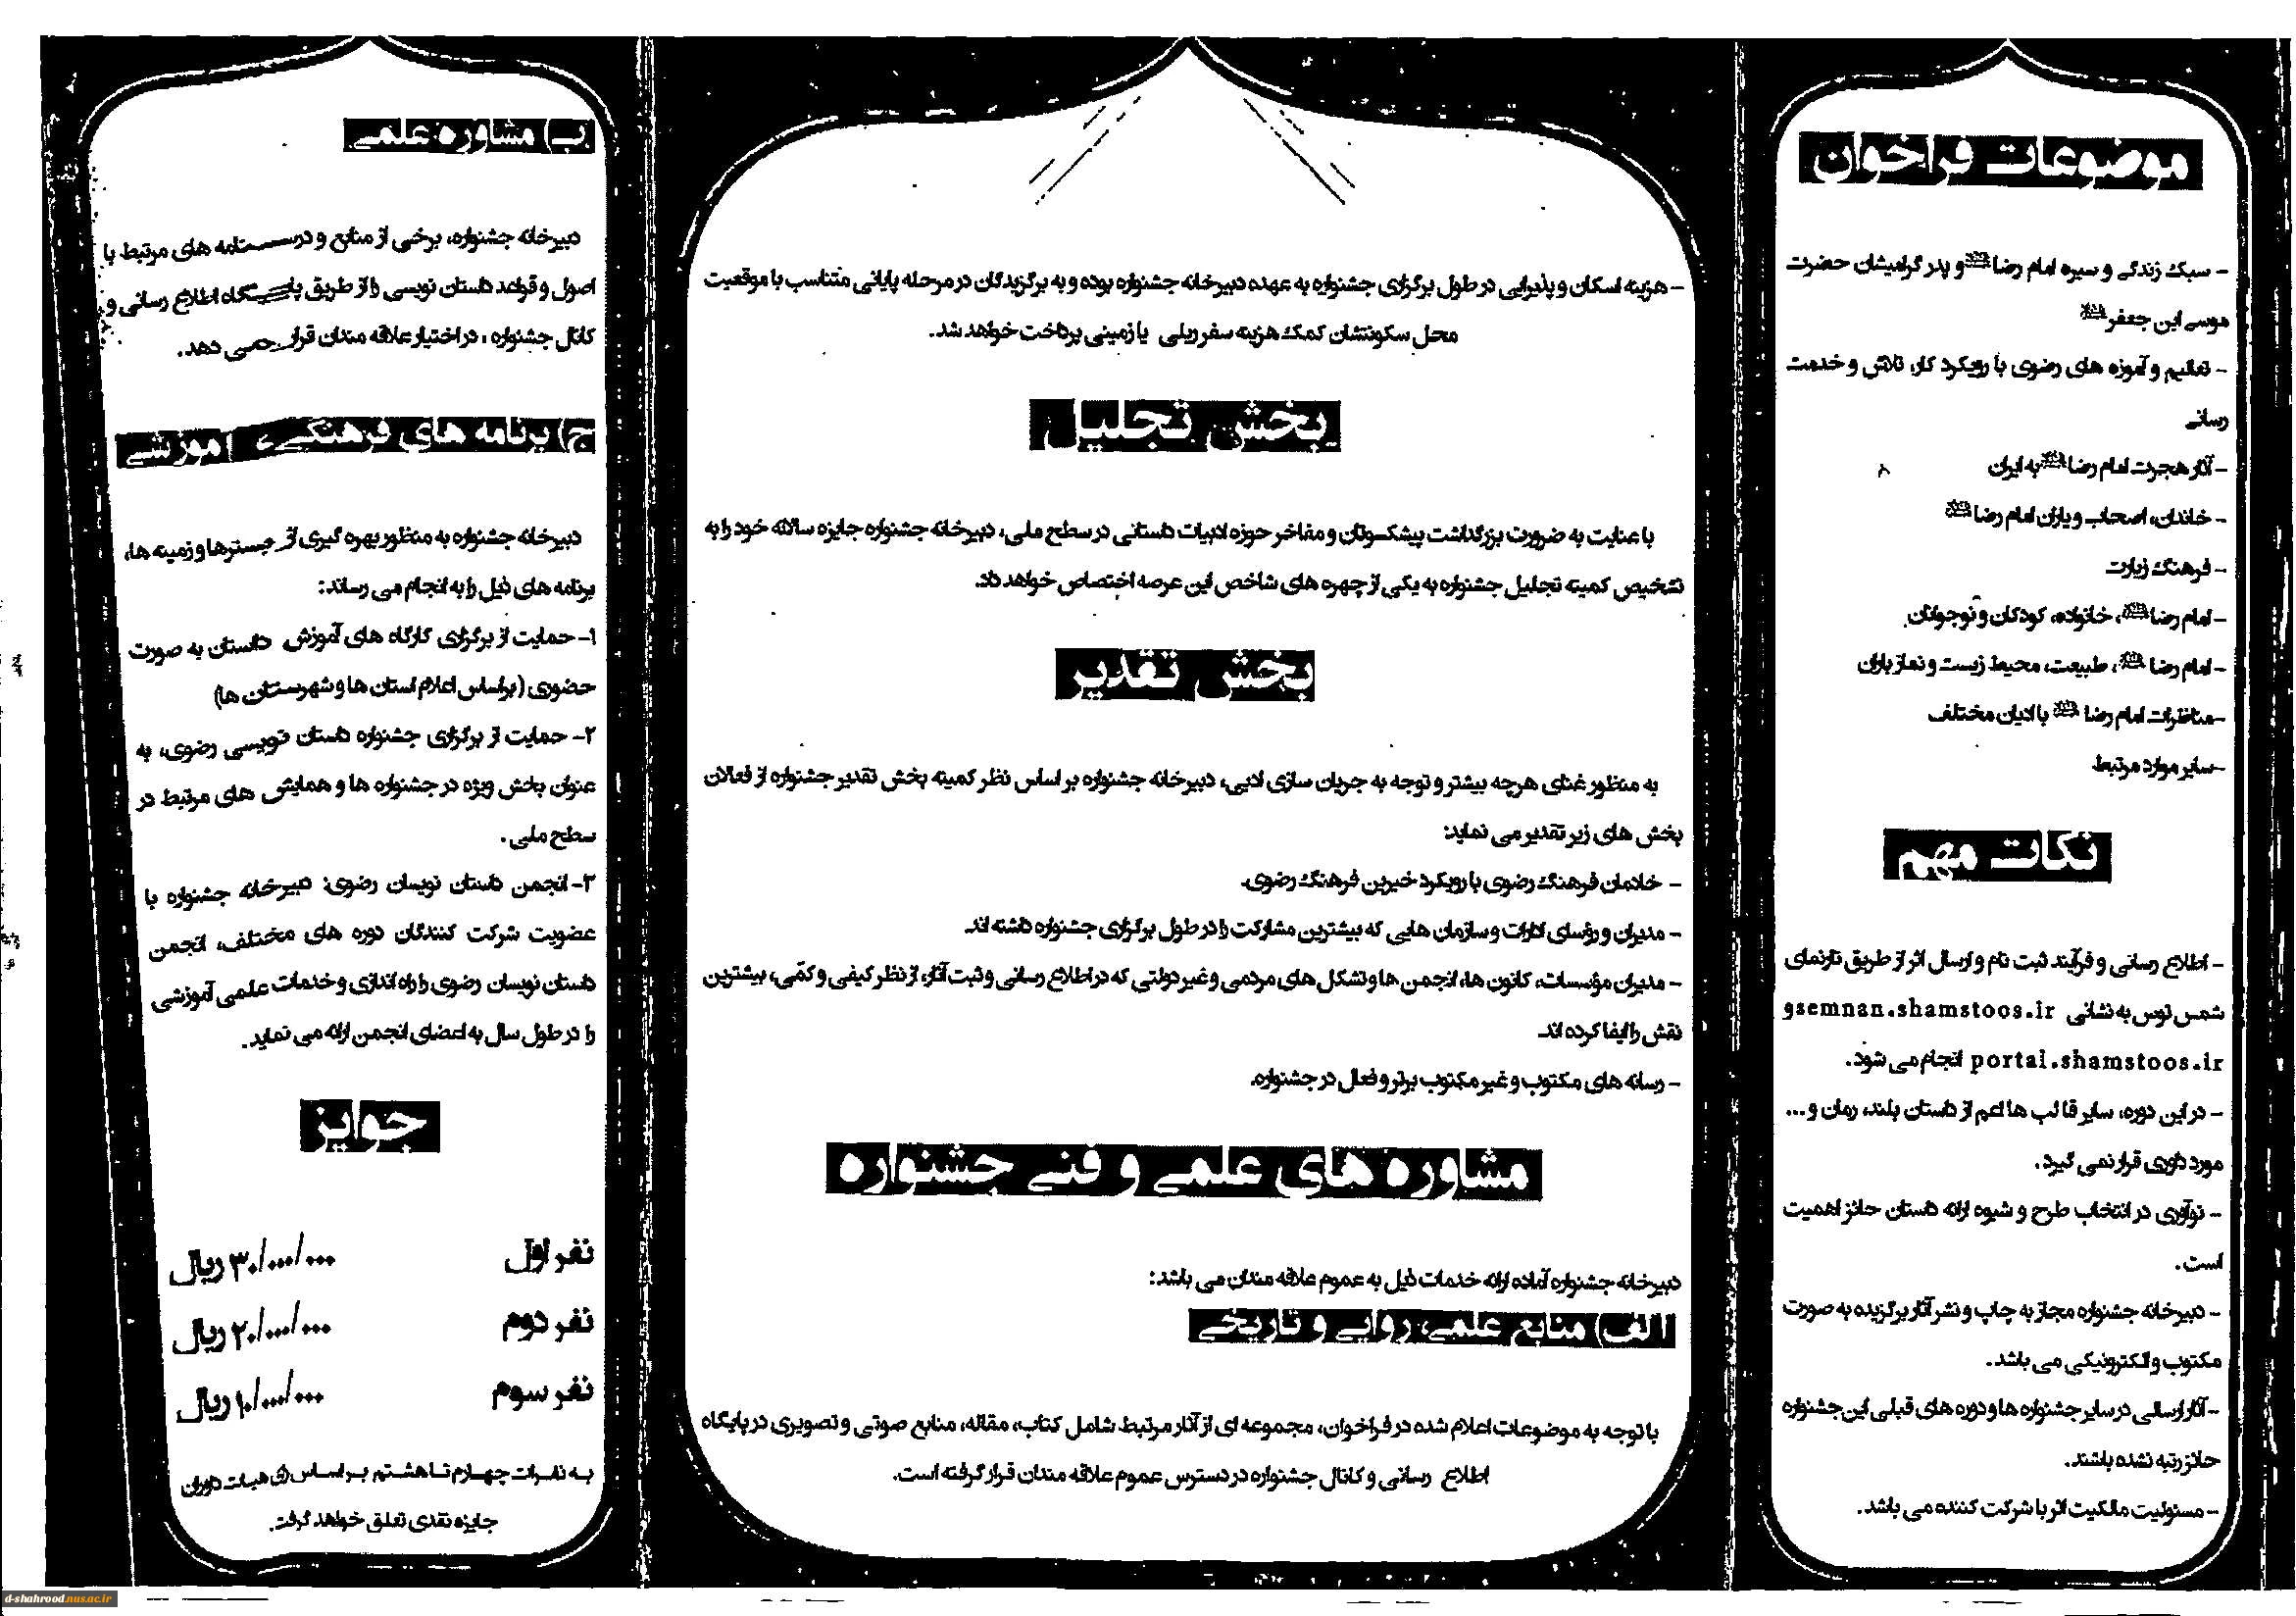 موضوعات فراخوان
- سبک زندگی و سیره امام رضا و پدر گرامیشان حضرت
موسی ابن جعفر
- تعالیم و آموزه های رضوی با رویکرد کار، تلاش و خدمت
رسانی
- آثار هجرت امام رضا به ایران
- خاندان، اصحاب و یاران امام رضا
- فرهنگ زیارت
- امام رضا، خانواده، کودکان و نوجوانان
- امام رضا، طبیعت، محیط زیست و نماز باران
- مناظرات امام رضا با ادیان مختلف
- سایر موارد مرتبط
نکات مهم
- اطلاع رسانی و فرآیند ثبت نام و ارسال اثر از طریق تارنمای
شمس توس به نشانی semnan.shamstoos.ir و
portal.shamstoos.ir انجام می شود.
- در این دوره، سایر قالب ها اعم از داستان بلند، رمان و...
مورد داوری قرار نمی گیرد.
- نوآوری در انتخاب طرح و شیوه ارائه داستان حائز اهمیت
است.
- دبیرخانه جشنواره مجاز به چاپ و نشر آثار برگزیده به صورت
مکتوب و الکترونیکی می باشد.
- آثار ارسالی در سایر جشنواره ها و دوره های قبلی این جشنواره
حائز رتبه نشده باشند.
- مسئولیت مالکیت اثر با شرکت کننده می باشد.
- هزینه اسکان و پذیرایی در طول برگزاری جشنواره به عهده دبیرخانه جشنواره بوده و به برگزیدگان در مرحله پایانی متناسب با موقعیت
محل سکونتشان کمک هزینه سفر ریلی یا زمینی پرداخت خواهد شد.
بخش تجلیل
با عنایت به ضرورت بزرگداشت پیشکسوتان و مفاخر حوزه ادبیات داستانی در سطح ملی، دبیرخانه جشنواره جایزه سالانه خود را به
تشخیص کمیته تجلیل جشنواره به یکی از چهره های شاخص این عرصه اختصاص خواهد داد.
بخش تقدیر
به منظور غنای هرچه بیشتر و توجه به جریان سازی ادبی، دبیرخانه جشنواره بر اساس نظر کمیته بخش تقدیر جشنواره از فعالان
بخش های زیر تقدیر می نماید:
- خادمان فرهنگ رضوی با رویکرد خیرین فرهنگ رضوی.
- مدیران و رؤسای ادارات و سازمان هایی که بیشترین مشارکت را در طول برگزاری جشنواره داشته اند.
- مدیران مؤسسات، کانون ها، انجمن ها و تشکل های مردمی و غیر دولتی که در اطلاع رسانی و ثبت آثار، از نظر کیفی و کمّی، بیشترین
نقش را ایفا کرده اند.
- رسانه های مکتوب و غیر مکتوب برتر و فعال در جشنواره.
مشاوره های علمی و فنی جشنواره
دبیرخانه جشنواره آماده ارائه خدمات ذیل به عموم علاقه مندان می باشد:
الف) منابع علمی، روایی و تاریخی
با توجه به موضوعات اعلام شده در فراخوان، مجموعه ای از آثار مرتبط شامل کتاب، مقاله، منابع صوتی و تصویری در پایگاه
اطلاع رسانی و کانال جشنواره در دسترس عموم علاقه مندان قرار گرفته است.
ب) مشاوره علمی
دبیرخانه جشنواره، برخی از منابع و درسنامه های مرتبط با
اصول و قواعد داستان نویسی را از طریق پایگاه اطلاع رسانی و
کانال جشنواره، در اختیار علاقه مندان قرار می دهد.
ج) برنامه های فرهنگی، آموزشی
دبیرخانه جشنواره به منظور بهره گیری از بسترها و زمینه ها،
برنامه های ذیل را به انجام می رساند:
۱- حمایت از برگزاری کارگاه های آموزش داستان به صورت
حضوری (براساس اعلام استان ها و شهرستان ها)
۲- حمایت از برگزاری جشنواره داستان نویسی رضوی، به
عنوان بخش ویژه در جشنواره ها و همایش های مرتبط در
سطح ملی.
۳- انجمن داستان نویسان رضوی: دبیرخانه جشنواره با
عضویت شرکت کنندگان دوره های مختلف، انجمن
داستان نویسان رضوی را راه اندازی و خدمات علمی آموزشی
را در طول سال به اعضای انجمن ارائه می نماید.
جوایز
نفر اول ۳۰/۰۰۰/۰۰۰ ریال
نفر دوم ۲۰/۰۰۰/۰۰۰ ریال
نفر سوم ۱۰/۰۰۰/۰۰۰ ریال
به نفرات چهارم تا هشتم بر اساس رای هیات داوران
جایزه نقدی تعلق خواهد گرفت.
d-shahrood.nus.ac.ir